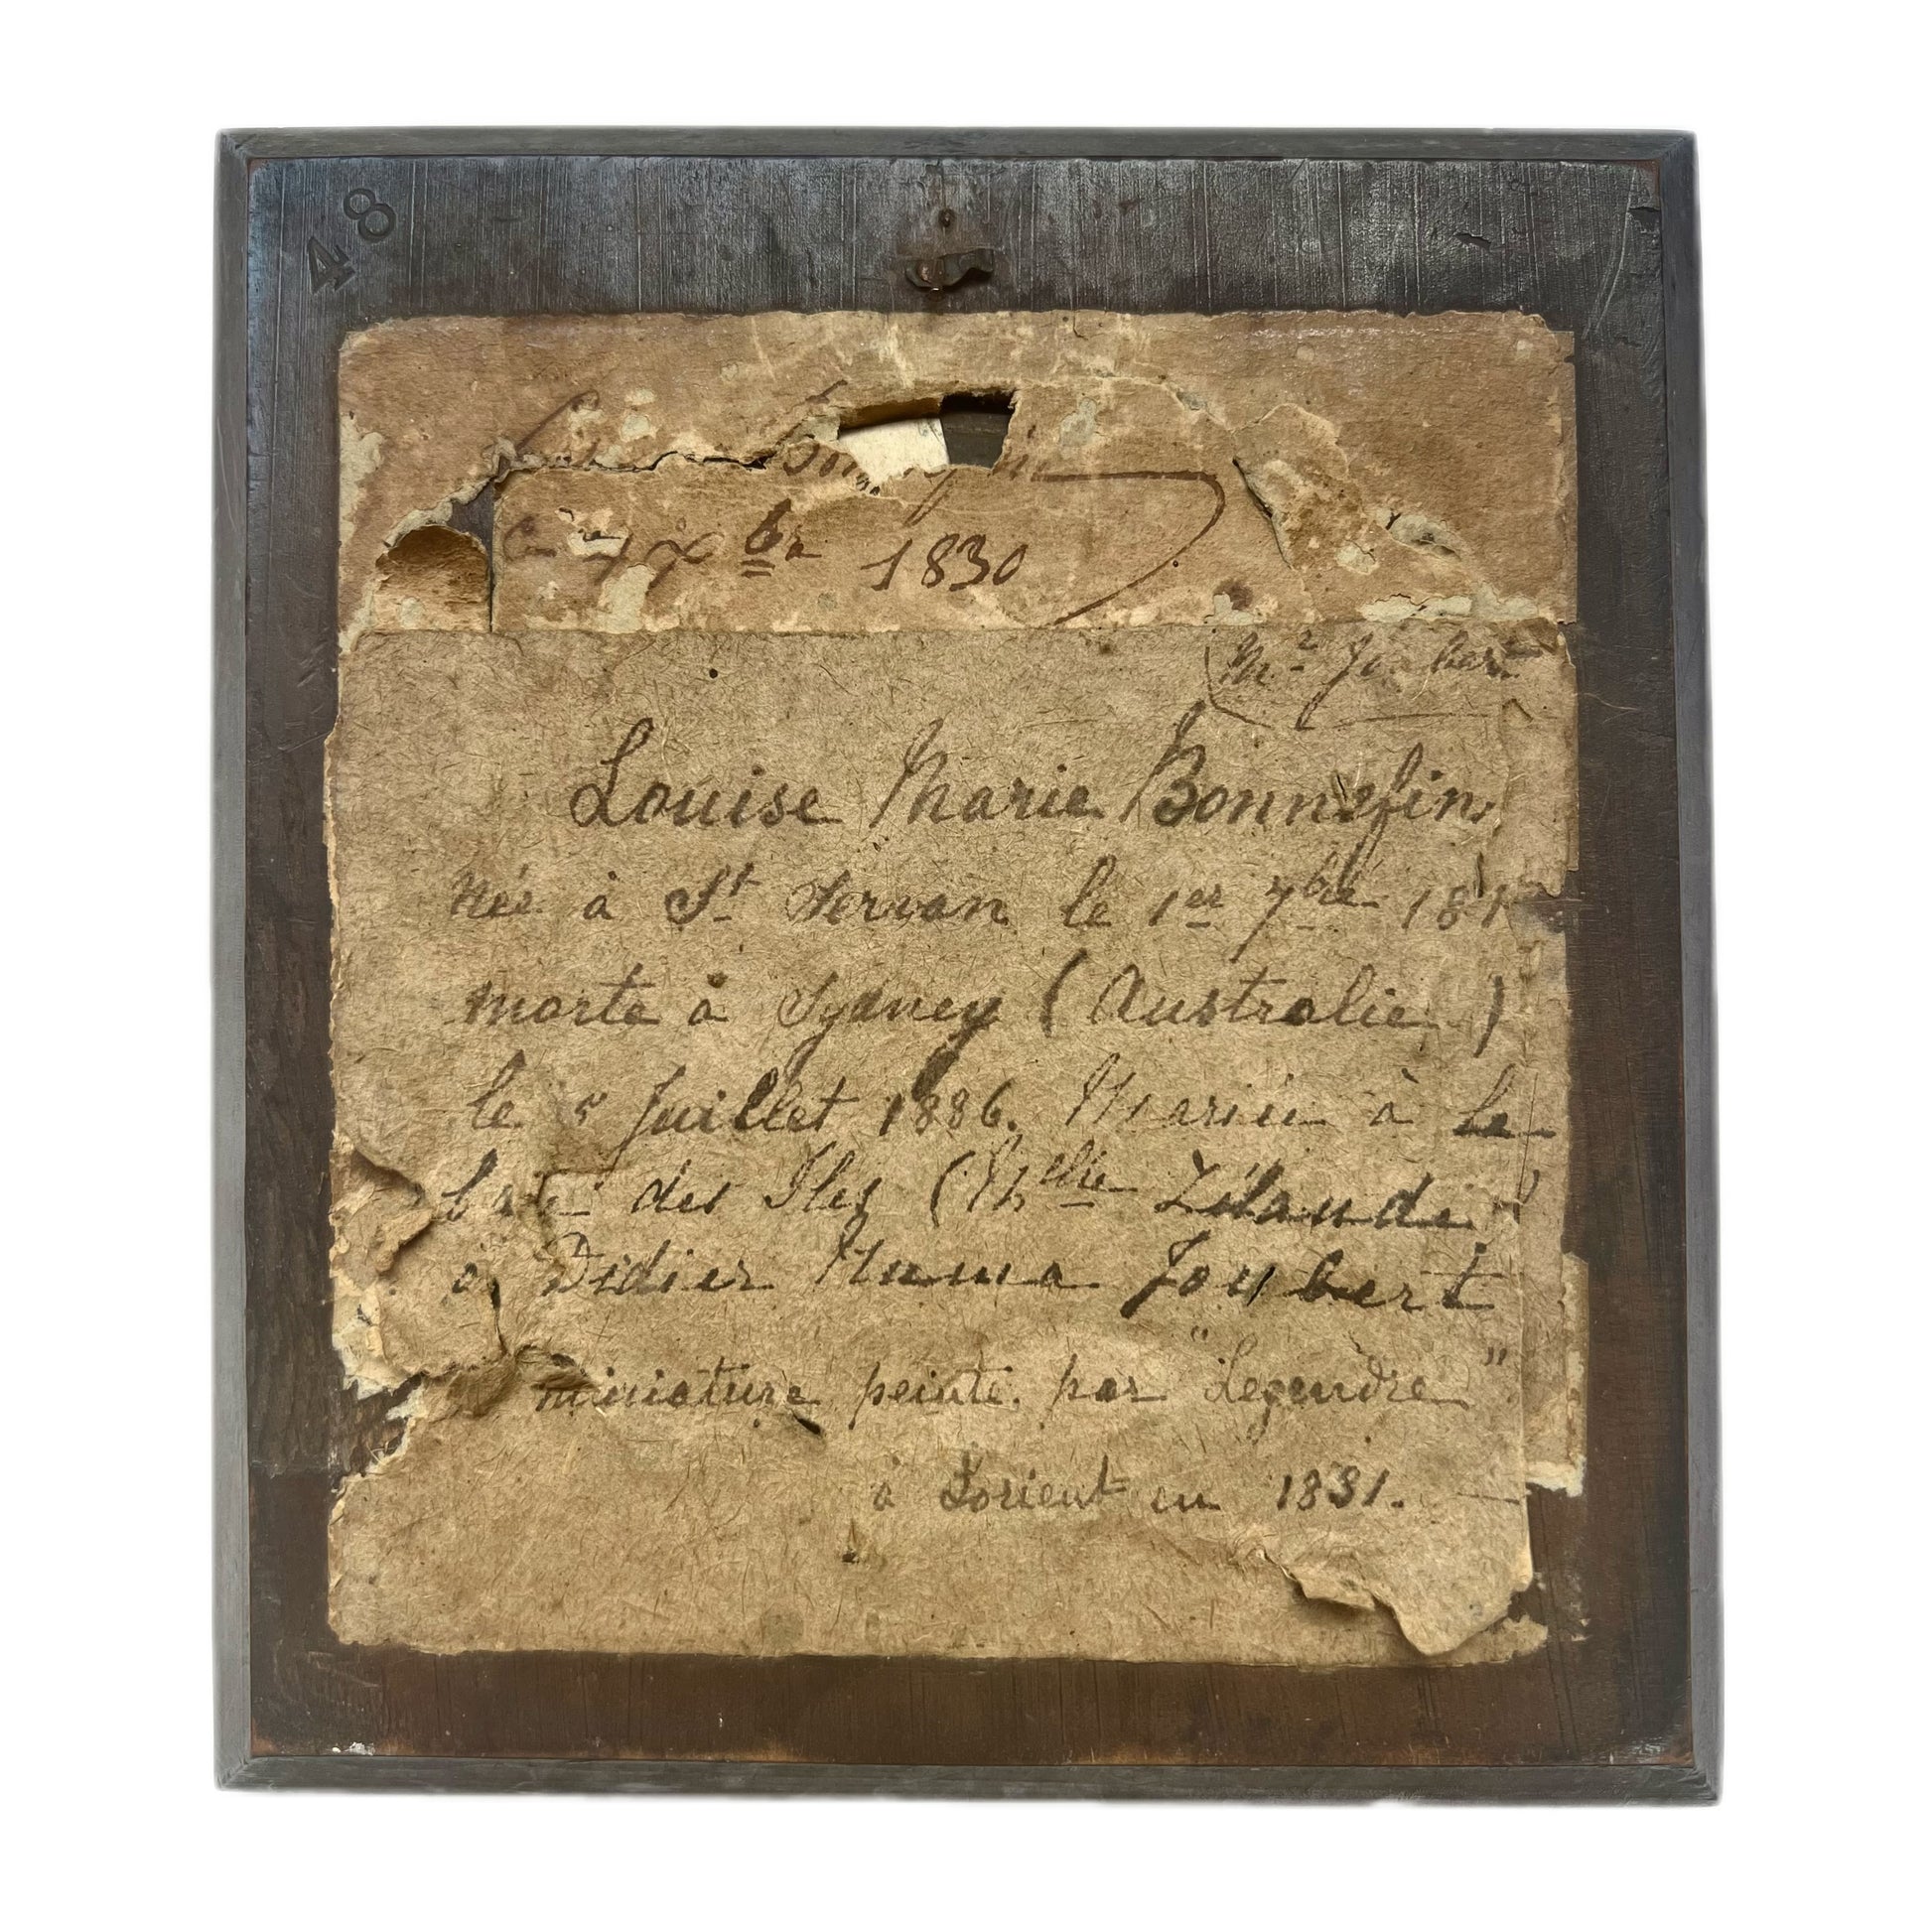 48
Bonnefin
Ce 4 Xbre 1830
Mr Joubert
Louise Marie Bonnefin
Née à St Servan le 1er 7bre 181
morte à Sydney (Australie)
le 5 Juillet 1886. Mariée à la
baie des Iles (Nlle Zélande)
à Didier Numa Joubert
miniature peinte par "Legendre"
à Lorient en 1831.